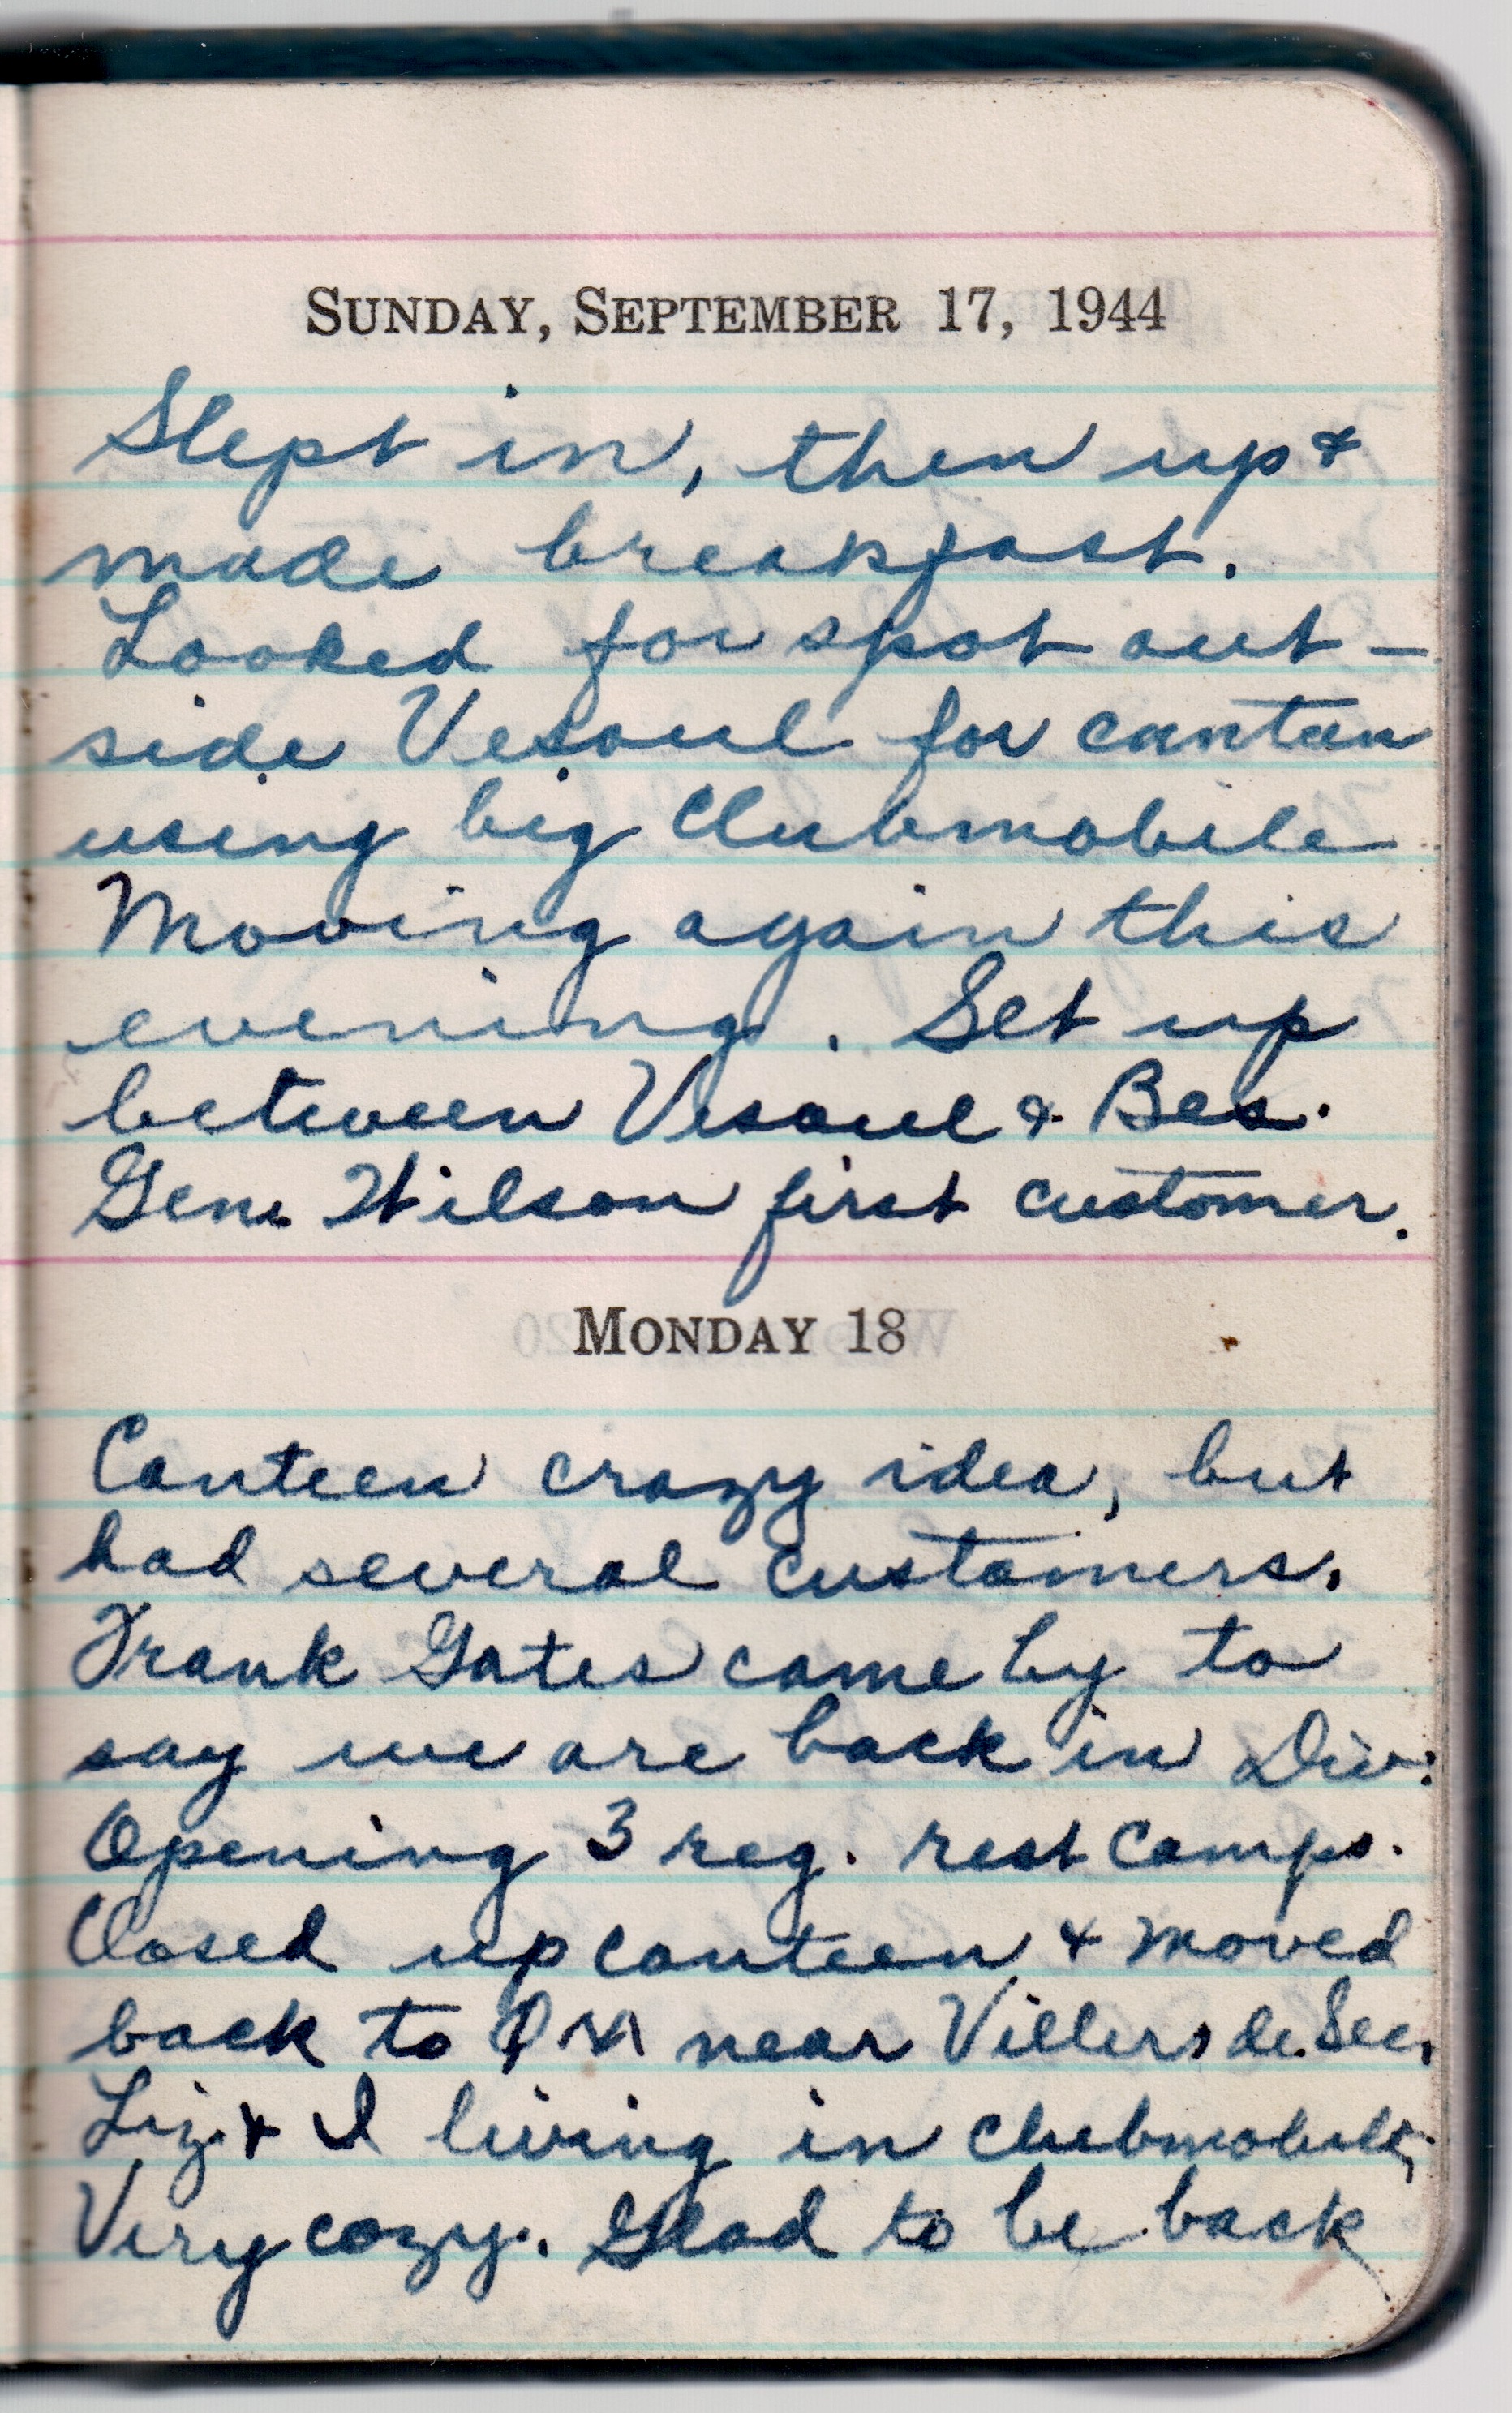 SUNDAY, SEPTEMBER 17, 1944
Slept in, then up &
made breakfast.
Looked for spot out-
side Vesoul for canteen
using big Clubmobile
Moving again this
evening. Set up
between Vesoul & Bes.
Gen. Wilson first customer.
MONDAY 18
Canteen crazy idea, but
had several customers.
Frank Gates came by to
say we are back in Div.
Opening 3 reg. rest camps.
Closed up canteen & moved
back to QM near Villers de Sec.
Liz & I living in clubmobile,
Very cozy. Glad to be back